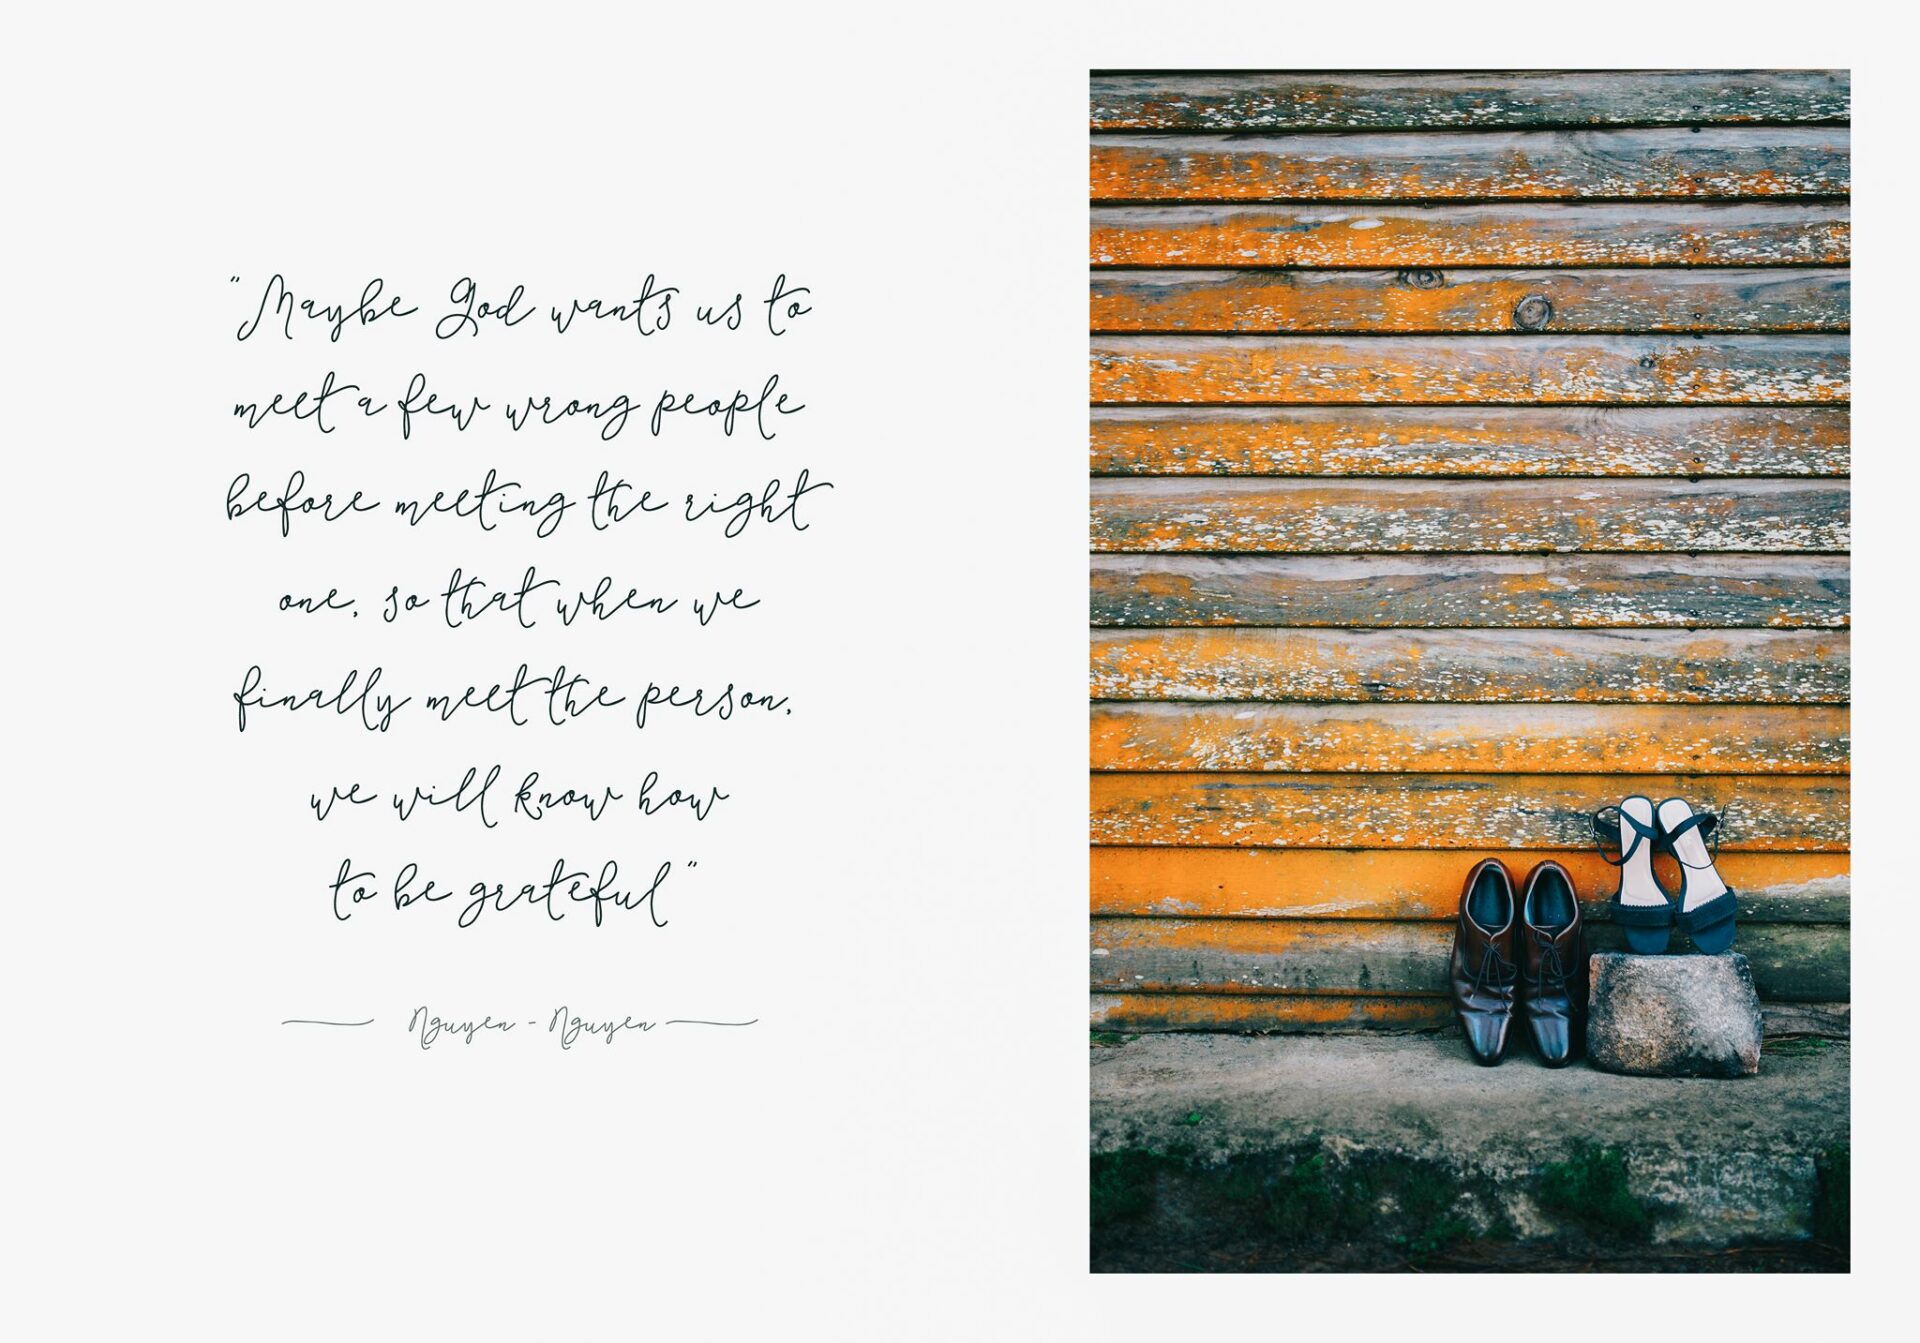 "Maybe God wants us to
meet a few wrong people
before meeting the right
one, so that when we
finally meet the person,
we will know how
to be grateful"
Nguyen - Nguyen